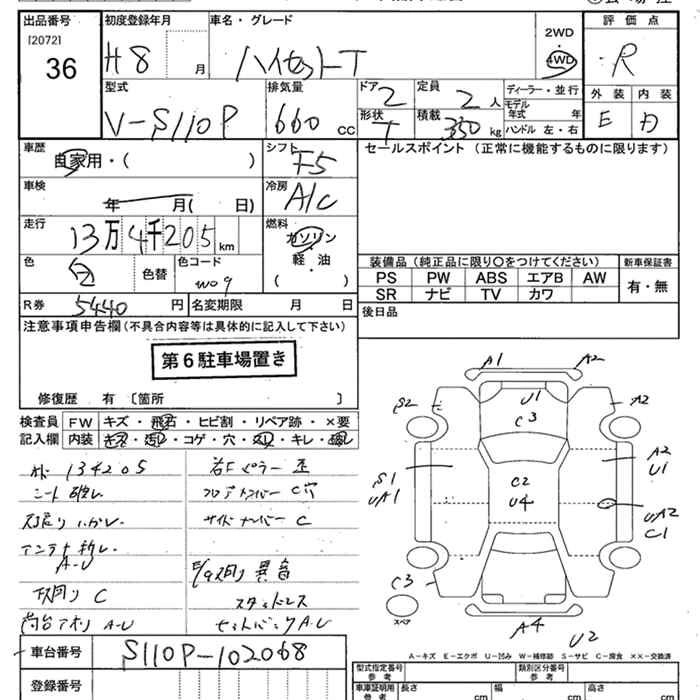 出品番号 初度登録年月 車名・グレード 2WD 評価点
[2072]
36 H8 月 ハイゼットT 4WD R
型式 排気量 ドア 2 定員 2人 ディーラー・並行 外装 内装
モデル年式 年
V-S110P 660 CC 形状 T 積載 350 kg ハンドル 左・右 E D
車歴 自家用・( ) シフト F5 セールスポイント (正常に機能するものに限ります)
車検 年 月( 日) 冷房 A/C
走行 13万4千205km 燃料 ガソリン・軽油 ( )
色 白 色替 色コード W09 装備品 (純正品に限り○をつけてください) 新車保証書
PS PW ABS エアB AW 有・無
SR ナビ TV カワ
R券 5440円 名変期限 月 日 後日品
注意事項申告欄(不具合内容等は具体的に記入して下さい)
第6駐車場置き
修復歴 有〔箇所 〕
検査員 FW キズ・飛石・ヒビ割・リペア跡・×要
記入欄 内装 キズ・汚レ・コゲ・穴・スレ・キレ・破レ
134205 右Fピラー 歪
シート破レ フロアメンバーC穴
サイドメンバーC
A-U
異音
下回りC スタッドレス
荷台アオリA-U A-U
A1 A2
S2 U1 A2
C3
S1 C2 A2
UA1 U4 U1
UA2
C1
C3
スペア A4 U2
A-キズ E-エクボ U-凹み W-補修跡 S-サビ C-腐食 ××-交換済
車台番号 S110P-102068 型式指定番号 参考 類別区分番号 参考
登録番号 車庫証明用 参考 長さ cm 幅 cm 高さ cm